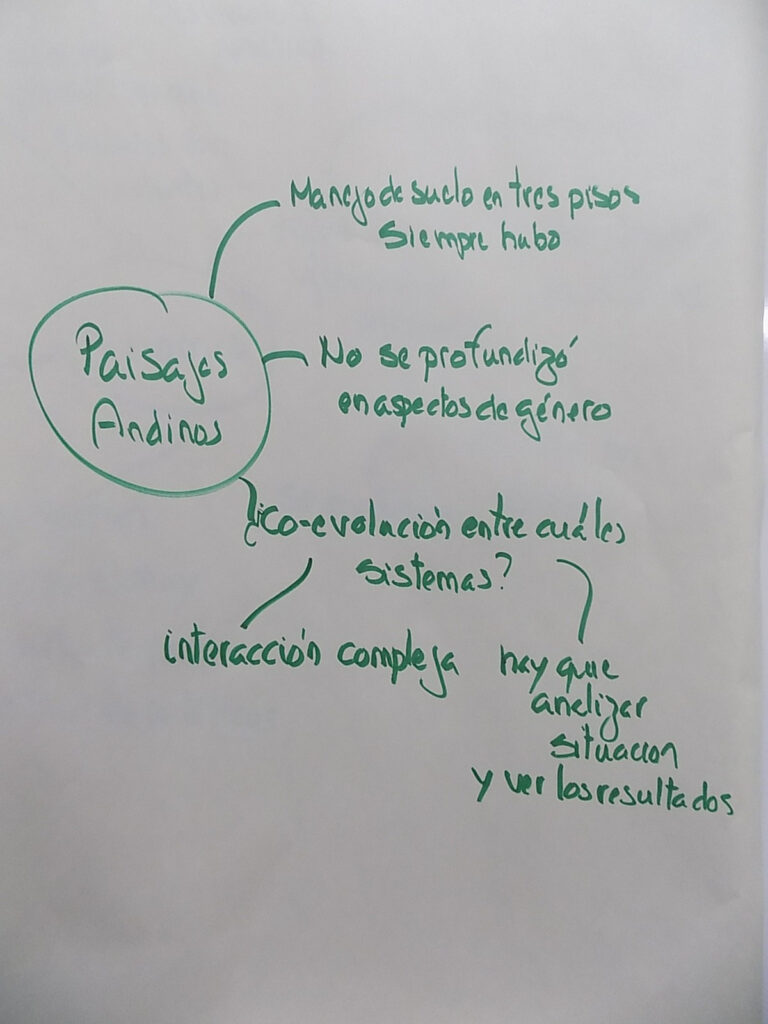 Paisajes
Andinos
Manejo de suelo en tres pisos
siempre hubo
No se profundizó
en aspectos de género
¿co-evolución entre cuáles
sistemas?
interacción compleja
hay que
analizar
situacion
y ver los resultados